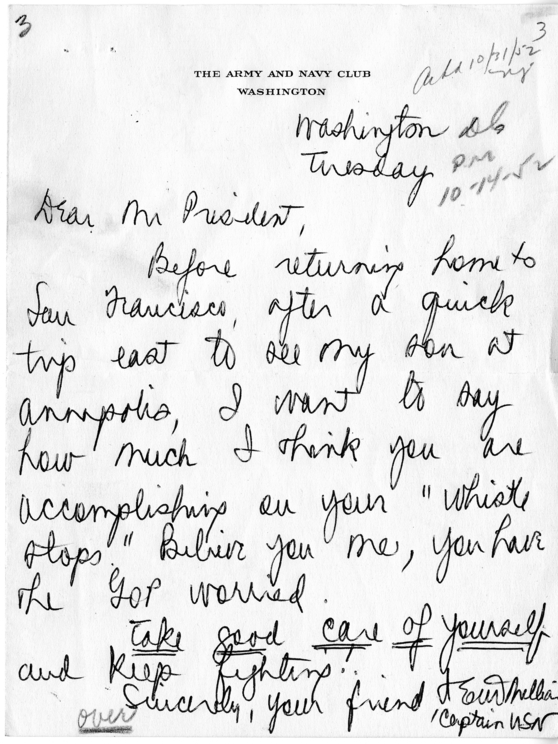 3
3
Ackd 10/31/52
THE ARMY AND NAVY CLUB
WASHINGTON
Washington DC
Tuesday
P.M
10-14-52
Dear Mr President,
Before returning home to
San Francisco, after a quick
trip east to see my son at
Annapolis, I want to say
how much I think you are
accomplishing on your "whistle
stops." Believe you me, you have
the GOP worried.
Take good care of yourself
and keep fighting!
Sincerely, your friend
Captain USN
over